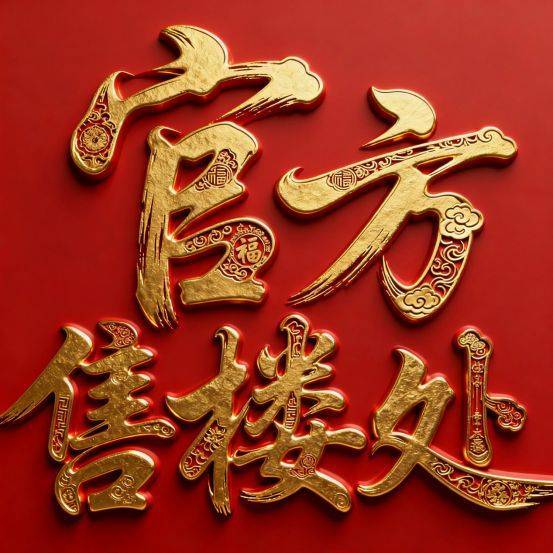 官方
售楼处